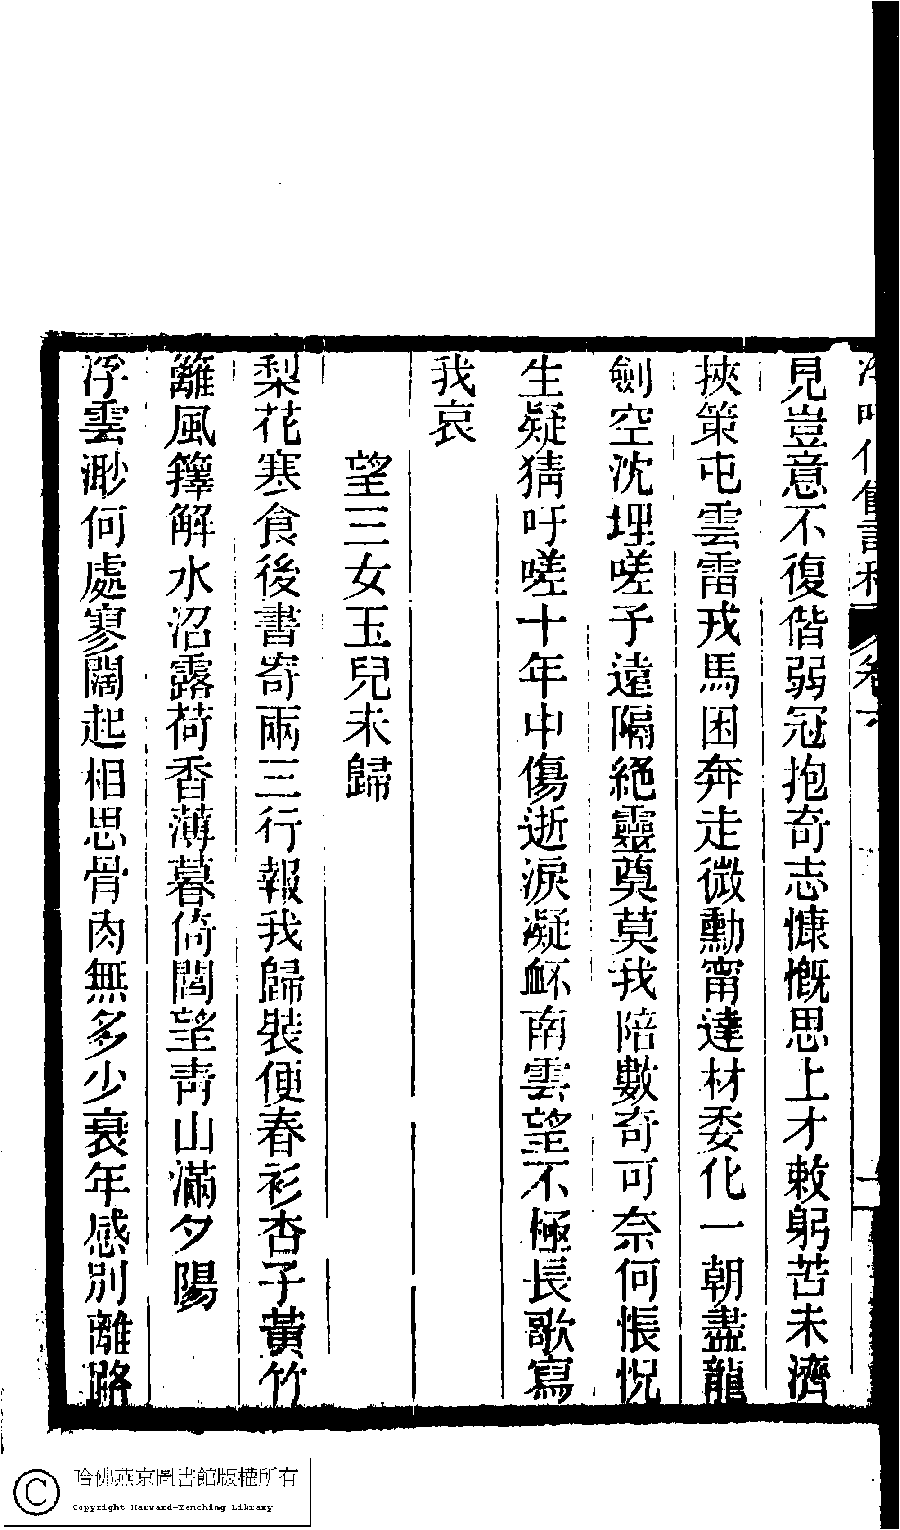 見豈意不復偕弱冠抱奇志慷慨思上才敕躬苦未濟
挾策屯雲雷戎馬困奔走微勳甯達材委化一朝盡龍
劍空沈埋嗟予遠隔絶靈奠莫我陪數奇可奈何悵怳
生疑猜吁嗟十年中傷逝淚凝衃南雲望不極長歌寫
我哀
望三女玉兒未歸
梨花寒食後書寄兩三行報我歸裝便春衫杏子黃竹
籬風籜解水沼露荷香薄暮倚閭望靑山滿夕陽
浮雲渺何處寥闊起相思骨肉無多少衰年感別離路
卷六
哈佛燕京圖書館版權所有
Copyright Harvard-Yenching Library